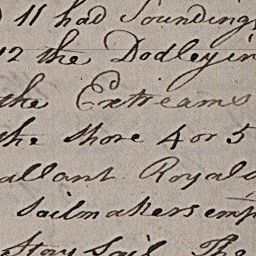 11 had Soundings
12 the Dodleyin
the Extreams
the shore 4 or 5
allant Royals
Sailmakers emp
Stay Sail The